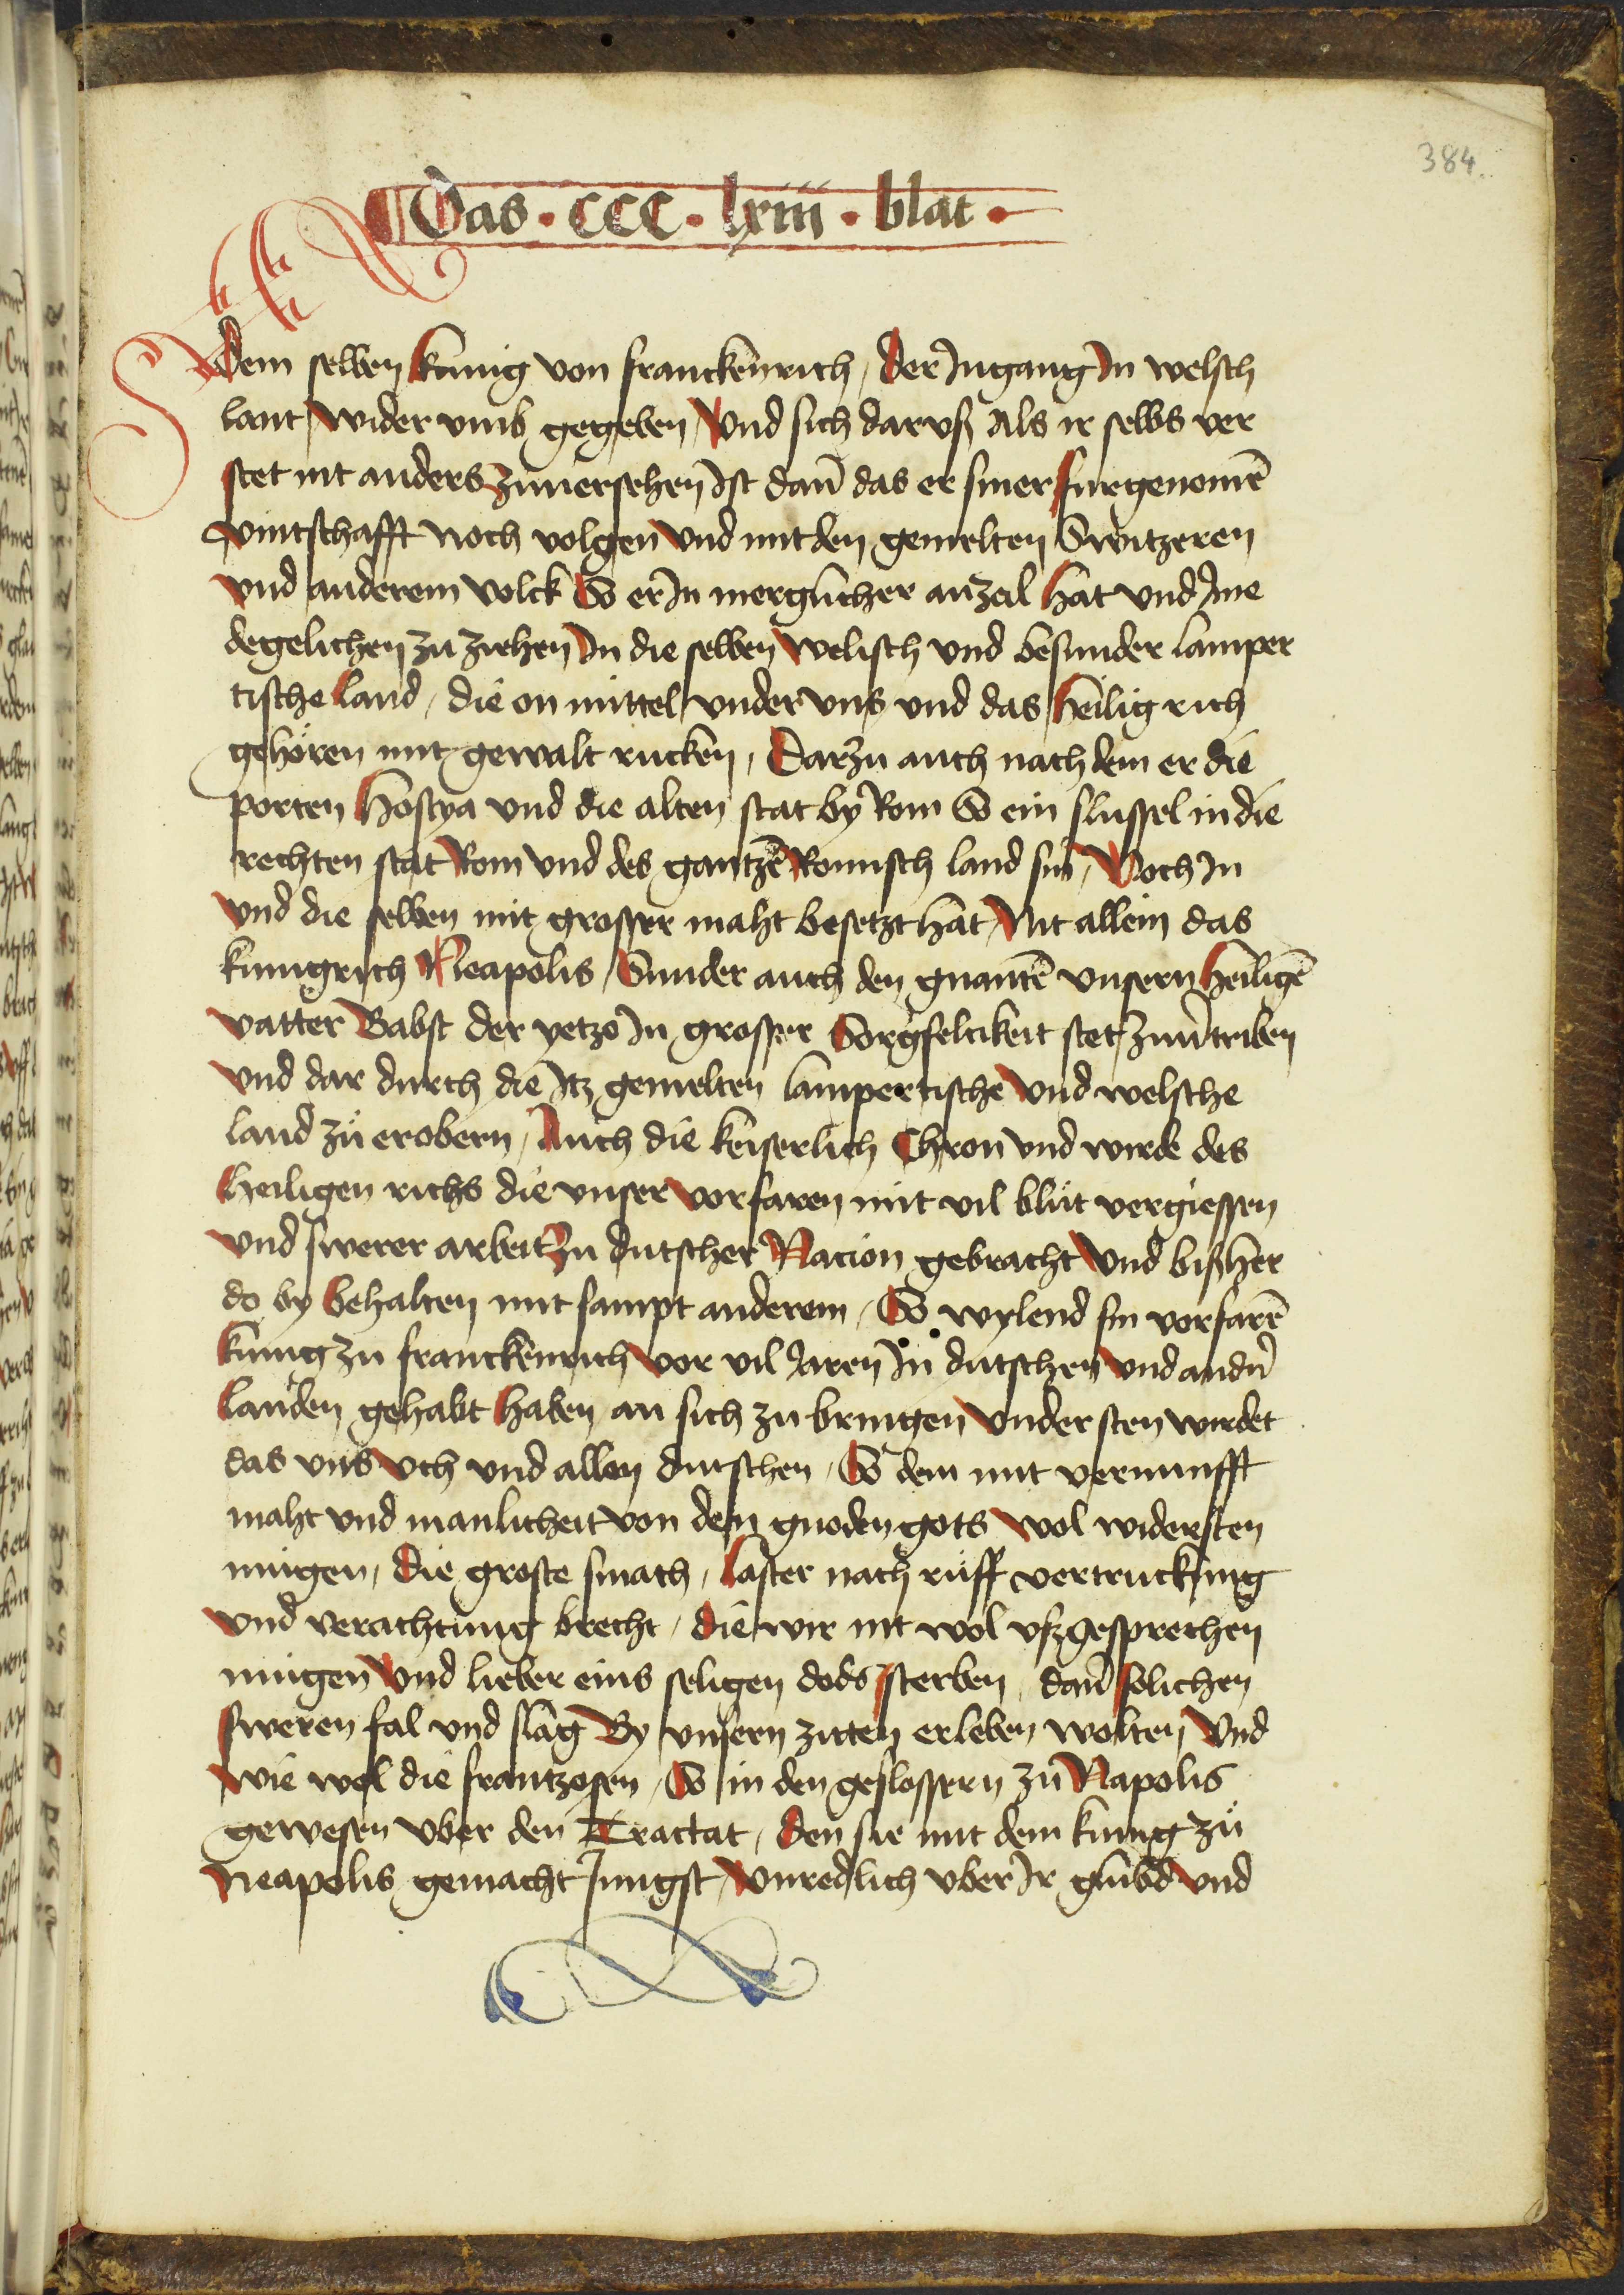 384.
Das · CCC · lxiii · blat ·
Dem selben kunig von franckenrich / Der Jngang Jn welsch
lant / wider vmb gegeben / Vnd sich darvß Als ir selbs ver
stet nit anders zuuersehen Jst dan̄ das er siner furgenomē
vintschafft noch volgen Vnd mit den gemelten Switzeren
vnd anderem volck So er Jn merglicher anzal hat vnd Jme
degelichen zu ziehen Jn die selben welisch vnd besunder lamper
tische land / die on mittel vnder vns vnd das heilig rich
gehören mit gewalt rucken / Darzu auch nach dem er die
porten Hostya vnd die alten stat by Rom So ein slussel in die
rechten stat Rom vnd des gantzē Romisch land sin / Noch Jn
vnd die selben mit grosser maht besetzt hat / Nit allein das
kunigrich Neapolis / Sunder auch den gnantē vnsern heiligē
vatter Babst der yetzo Jn grosser Sorgfeltikeit stet zuuertriben
vnd dar durch die Jtz gemelten lampertische vnd welsche
land zů erobern / Auch die keiserlich Chron vnd wirde des
heiligen richs die vnser vorfaren mit vil blůt vergiessen
vnd swerer arbeit zu dutscher Nacion gebracht Vnd bißher
do by behalten mit sampt anderem / So wylend sin vorfarē
kunig zu franckenrich vor vil Jaren Jn dutschen vnd andn̄
landen gehabt haben / an sich zu bringen vndersten wirdet
das vns vch vnd allen dutschen / So dem mit vernunfft
maht vnd manlicheit von den gnoden gots wol widersten
mugen / die groste smach / laster nach rüff vertruckung
vnd verachtung brecht / die wir nit wol vßgesprechen
mugen Vnd lieber eins seligen dods sterben / dan̄ solichen
sweren fal vnd slag By vnsern zitten erleben wolten / Vnd
Wie wol die frantzosen / So in den geslossern zu Napolis
gewesen vber den Tractat / den sie mit dem kunig zů
Neapolis gemacht Jungst / vnredlich vber Jr glubd Vnd